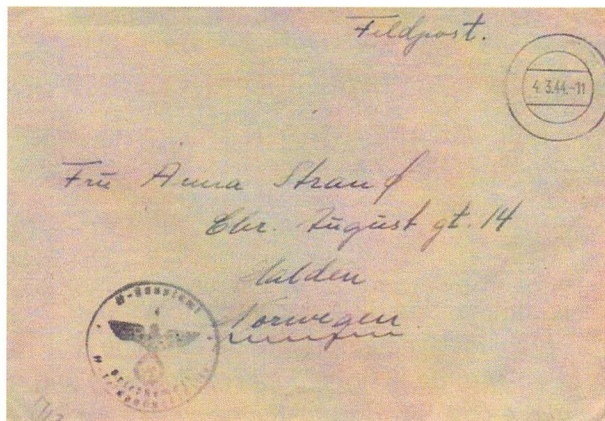 Feldpost.
4.3.44.-11
Fru Anna Strand
Chr. August gt. 14
Halden
Norwegen